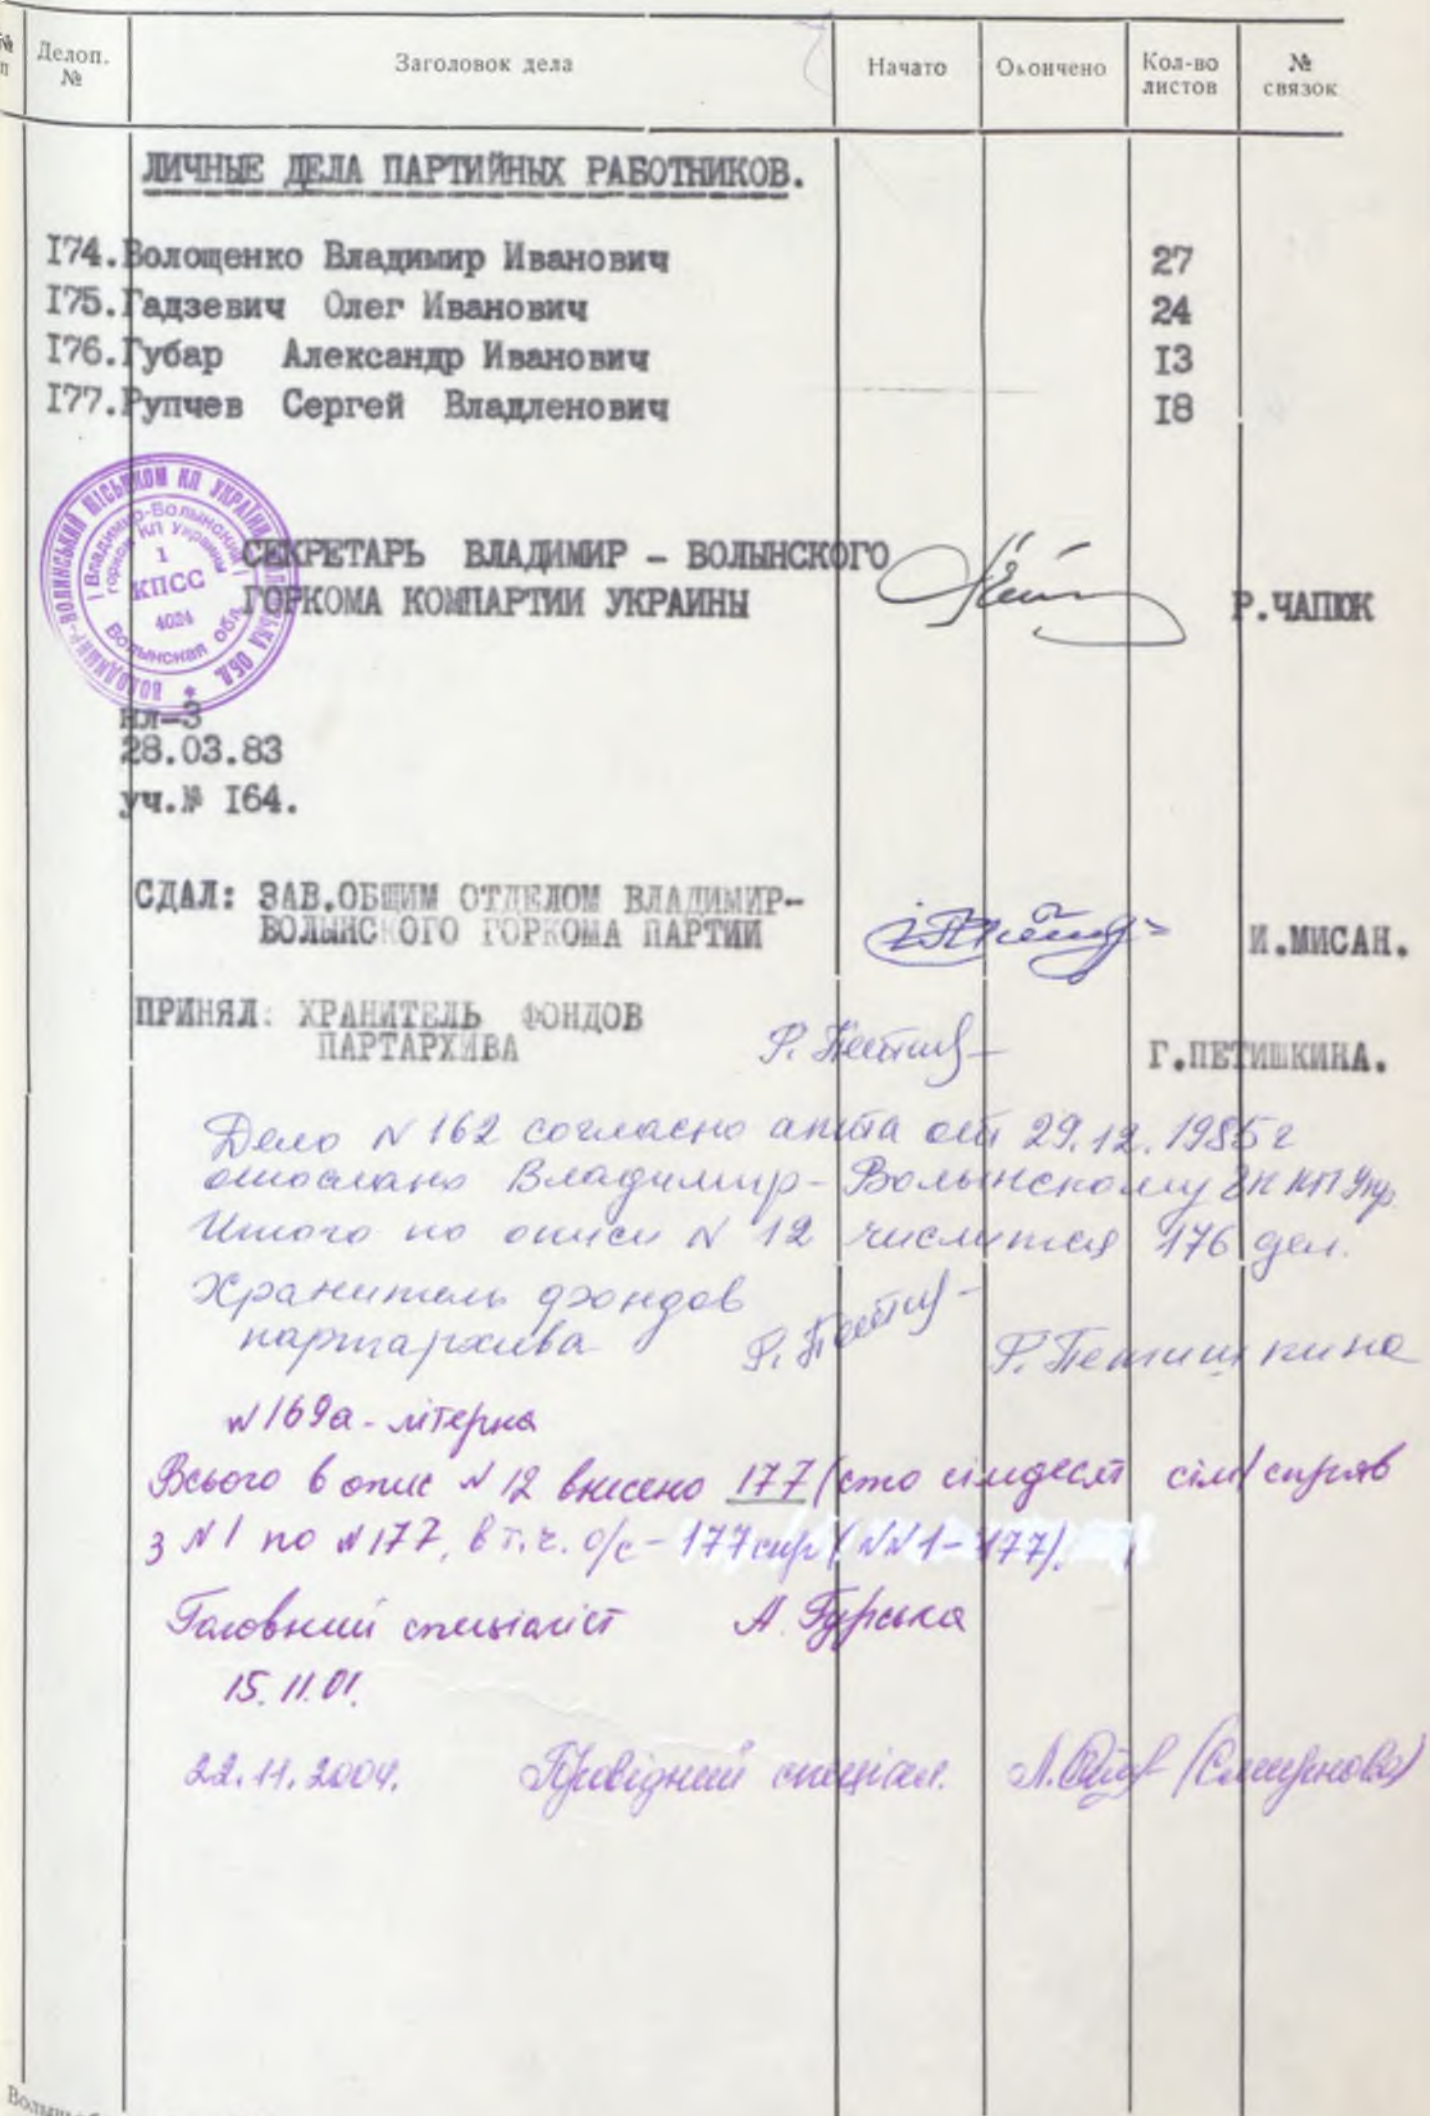 № п
Делоп. №
Заголовок дела
Начато
Окончено
Кол-во листов
№ связок
ЛИЧНЫЕ ДЕЛА ПАРТИЙНЫХ РАБОТНИКОВ.
I74. Волощенко Владимир Иванович 27
I75. Гадзевич Олег Иванович 24
I76. Губар Александр Иванович I3
I77. Рупчев Сергей Владленович I8
ВОЛОДИМИР-ВОЛИНСЬКИЙ МІСЬККОМ КП УКРАЇНИ ВОЛИНСЬКА ОБЛ.
Владимир-Волынский
горком КП Украины
1
КПСС
4024
Волынская обл.
СЕКРЕТАРЬ ВЛАДИМИР - ВОЛЫНСКОГО
ГОРКОМА КОМПАРТИИ УКРАИНЫ Р.ЧАПЮК
нл-3
28.03.83
уч.№ I64.
СДАЛ: ЗАВ.ОБЩИМ ОТДЕЛОМ ВЛАДИМИР-
ВОЛЫНСКОГО ГОРКОМА ПАРТИИ И.МИСАН.
ПРИНЯЛ: ХРАНИТЕЛЬ ФОНДОВ
ПАРТАРХИВА Г.ПЕТИШКИНА.
Дело № 162 согласно акта от 29.12.1985 г
отослано Владимир-Волынскому ГК КП Укр.
Итого по описи № 12 числится 176 дел.
Хранитель фондов
партархива Г. Петишкина
№ 169а - літерна
Всього в опис № 12 внесено 177 /сто сімдесят сім/ справ
з № 1 по № 177, в т.ч. о/с - 177 спр (№№ 1-177).
Головний спеціаліст А. Гурська
15.11.01.
22.11.2004. Провідний спеціал. (Смирнова)